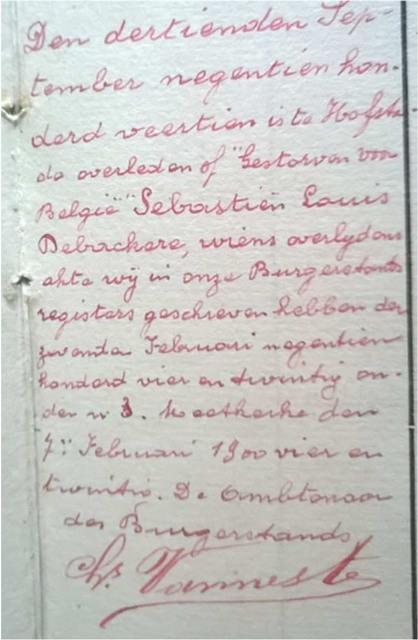 Den dertienden Sep-
tember negentien hon-
derd veertien is te Hofsta-
de overleden of "Gestorven voor
België" Sebastien Louis
Debackere, wiens overlydens
akte wy in onze Burgerstands
registers geschreven hebben den
zevenden Februari negentien
honderd vier en twintig on-
der n 3. Moetkerke den
7.n Februari 1900 vier en
twintig. De Ambtenaar
des Burgerstands
Ch. Vanneste